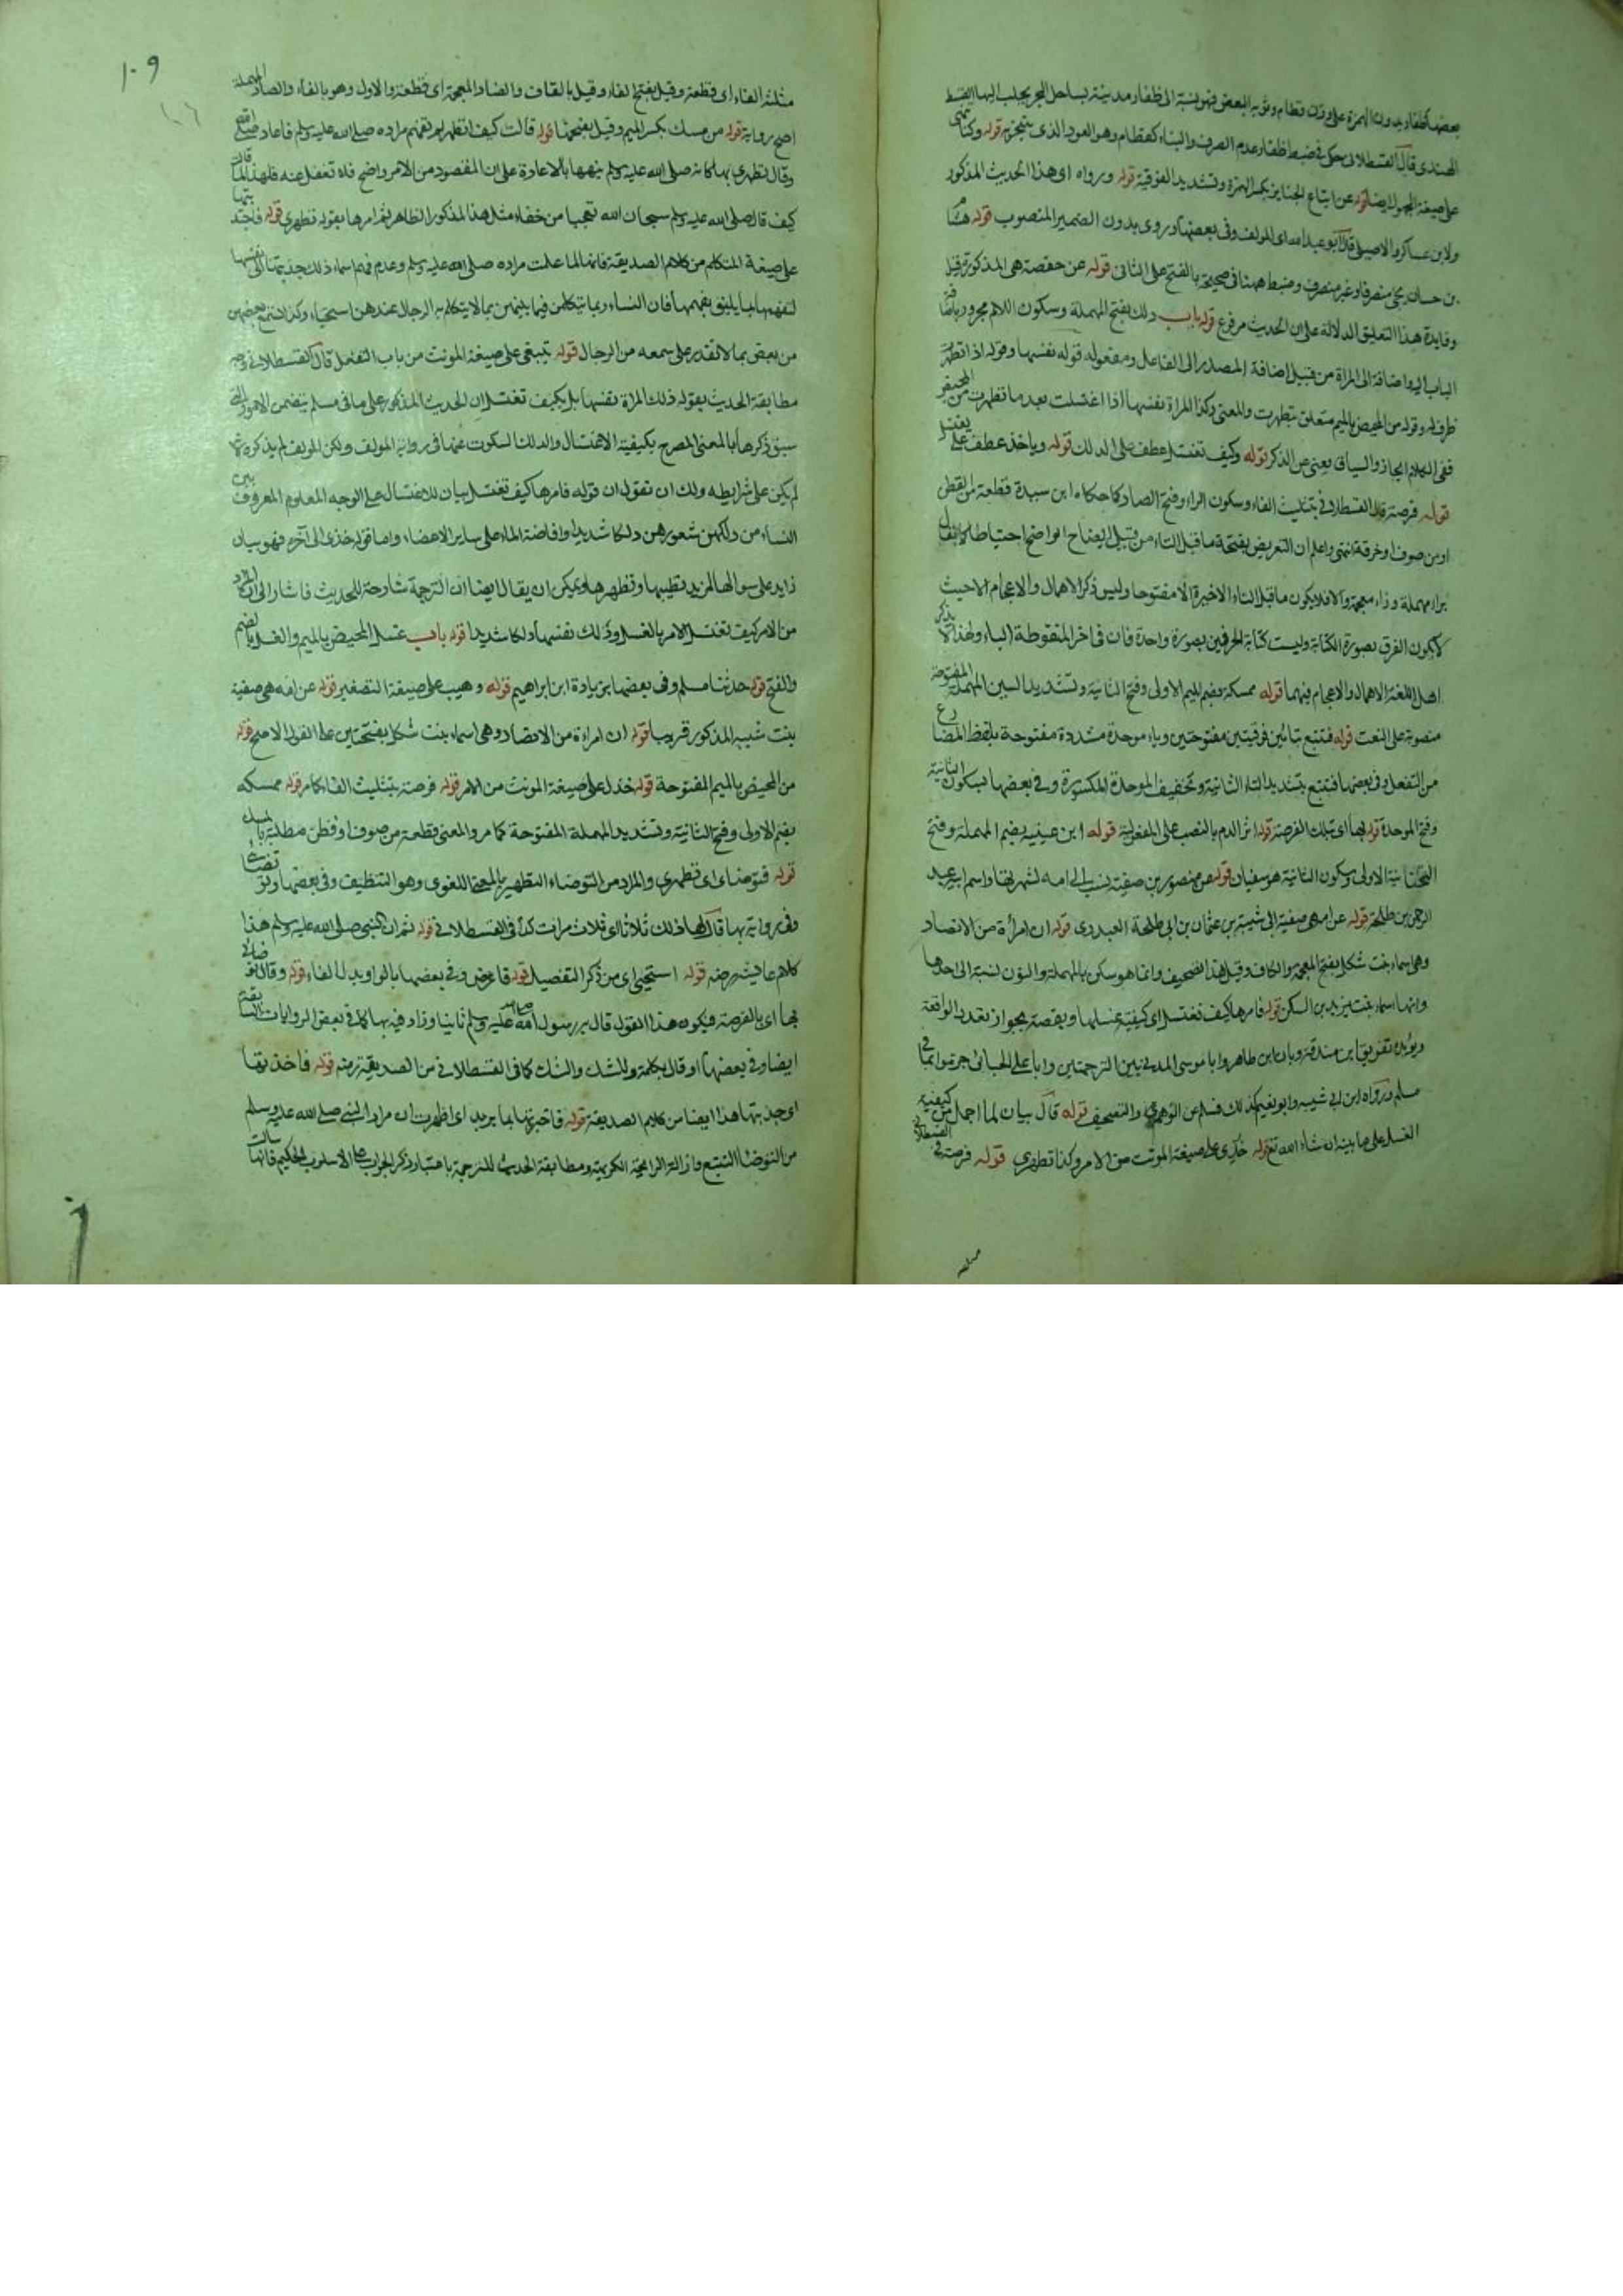 بعضها كظفار بدون الهمزة على وزن قطام وثوبه البعض فهو نسبة الى ظفار مدينة بساحل البحر يجلب اليها القسط
الهندى قال القسطلانى حكى فى ضبط ظفار عدم الصرف والبناء كقطام وهو العود الذى يتبخر به قوله وكنا ننهى
على صيغة المجهول ايضا قوله عن اتباع الجنايز بكسر الهمزة وتشديد الفوقية قوله ورواه اى هذا الحديث المذكور
ولابن عساكر والاصيلى قال ابو عبد الله اى المولف وفى بعضها وروى بدون الضمير المنصوب قوله هشام
بن حسان يجئ منصرفا وغير منصرف وضبط ههنا فى صحيحة بالفتح على الثانى قوله عن حفصة هى المذكورة قبل
وفايدة هذا التعليق الدلالة على ان الحديث مرفوع قوله باب دلك بفتح المهملة وسكون اللام مجرور باضافة
الباب اليه واضافته الى المراة من قبيل اضافة المصدر الى الفاعل ومفعوله قوله نفسها وقوله اذا تطهرت
ظرف له وقوله من المحيض بالميم متعلق بتطهرت والمعنى وكذا المراة نفسها اذا اغتسلت بعد ما تطهرت من المحيض
ففى الكلام ايجاز والسياق يعنى عن الذكر قوله وكيف تغتسل عطف على الدلك قوله وياخذ عطف على تغتسل
قوله فرصة قال القسطلانى بتثليث الفاء وسكون الراء وفتح الصاد كما حكاه ابن سيدة قطعة من القطن
او من صوف او خرقة انتهى واعلم ان التعريض بفتحة ما قبل التاء من قبيل ايضاح الواضح احتياطا
براء مهملة وزاء معجمة والا فلا يكون ما قبل التاء الاخيرة الا مفتوحا وليس ذكر الاهمال والاعجام الا حيث
لا يكون الفرق بصورة الكتابة وليست كتابة الحرفين بصورة واحدة فان فى اخر المنقوطة الياء ولهذا لا يذكر
اهل اللغة الاهمال والاعجام فيهما قوله ممسكة بضم الميم الاولى وفتح الثانية وتشديد السين المهملة المفتوحة
منصوبة على النعت قوله فتتبع بتائين فوقيتين مفتوحتين وباء موحدة مشددة مفتوحة بلفظ المضارع
من التفعل وفى بعضها فتتبع بتشديد التاء الثانية وتخفيف الموحدة المكسورة وفى بعضها بسكون الثانية
وفتح الموحدة قوله بها اى بتلك الفرصة قوله اثر الدم بالنصب على المفعولية قوله ابن عيينة بضم المهملة وفتح
التحتانية الاولى وسكون الثانية هو سفيان قوله عن منصور بن صفية نسب الى امه لشهرتها واسم ابيه عبد
الرحمن بن طلحة قوله عن امه هى صفية ابى شيبة بن عثمان بن ابى طلحة العبدرى قوله ان امراة من الانصار
وهى اسماء بنت شكل بفتح المعجمة والكاف وقيل هذا تصحيف وانما هو سكن بالمهملة والنون لنسبة الى جدها
وانها اسماء بنت يزيد بن السكن قوله فامرها كيف تغتسل اى كيفية غسلها وبقصة بجواز تعدد الواقعة
ويؤيده تفريق ابن مندة وبان ابن طاهر وابا موسى المدينى بين الترجمتين وابا على الجيانى جزموا بما فى
مسلم ورواه ابن ابى شيبه وابو نعيم كذلك فسلم من الوهم والتصحيف قوله قال بيان لما اجمل من كيفية
الغسل على ما بينه ان شاء الله تع قوله خذى على صيغة المونث من الامر وكذا تطهرى قوله فرصة فى القسطلانى
مثلثه
١٠٩
١٠٦
مثلثه الفاء اى قطعة وقيل بفتح الفاء وقيل بالقاف والضاد المعجمة اى قطعة والاول وهو بالفاء والصاد المهملة
اصح رواية قوله من مسك بكسر الميم وقيل بفتحها قوله قالت كيف اتطهر لم تفهم مراده صلى الله عليه وسلم فاعاد صلعم
وقال تطهرى بها كانه صلى الله عليه وسلم ينهها بالاعادة على ان المقصود من الامر واضح فلا تغفل عنه فلهذا لما قالت
كيف قال صلى الله عليه وسلم سبحان الله تعجبا من خفاء مثل هذا المذكور الظاهر ثم امرها بقوله تطهرى قوله فاجتذبتها
على صيغة المتكلم من كلام الصديقة فانها لما علمت مراده صلى الله عليه وسلم وعدم فهم اسماء ذلك جذبتها الى نفسها
لتفهمها بما يليق بفهمها فان النساء ربما يتكلمن فيما بينهن بما لا يتكلم به الرجال عندهن استحياء وكذا تسمع بعضهن
من بعض بما لا تقدر على سمعه من الرجال قوله تتبعى على صيغة المونث من باب التفعل قال القسطلانى وجه
مطابقة الحديث بقوله ذلك المراة نفسها بل بكيف تغتسل ان الحديث المذكور على ما فى مسلم يتضمن الامور التى
سبق ذكرها بالمعنى المصرح بكيفية الاغتسال والدلك المسكوت عنها فى رواية المولف ولكن المولف لم يذكره لما
لم يكن على شرايطه ولك ان تقول ان قوله فامرها كيف تغتسل بيان للاغتسال على الوجه المعلوم المعروف بين
النساء من دلكهن شعورهن دلكا شديدا وافاضة الماء على ساير الاعضاء واما قوله خذى الى آخره فهو بيان
زايد على سوالها لمزيد تطيبها وتطهرها ويمكن ان يقال ايضا ان الترجمة شارحة للحديث فاشار الى ان المراد
من الامر كيف تغتسل الامر بالغسل وذلك نفسها دلكا شديدا قوله باب غسل المحيض بالميم والغسل بالضم
والفتح قوله حدثنا مسلم وفى بعضها بزيادة ابن ابراهيم قوله وهيب على صيغة التصغير قوله عن امه هى صفية
بنت شيبه المذكور قريبا قوله ان امراة من الانصار وهى اسماء بنت شكل بفتحتين على القول الاصح قوله
من المحيض بالميم المفتوحة قوله خذى على صيغة المونث من الامر قوله فرصة بتثليث الفاء كما مر قوله ممسكه
بضم الاولى وفتح الثانية وتشديد المهملة المفتوحة كما مر والمعنى قطعة من صوف او قطن مطلية بالمسك
قوله فتوضاى اى تطهرى والمراد من التوضاء التطهير بالمعنى اللغوى وهو التنظيف وفى بعضها وتوضئى
وفى رواية بها قال لها ذلك ثلاثا اى ثلاث مرات كذا فى القسطلانى قوله ثم ان النبى صلى الله عليه وسلم هذا
كلام عايشه رضه قوله استحيى اى من ذكر التفصيل قوله فاعرض وفى بعضها بالواو بدل الفاء قوله وقال توضائى
بها اى بالفرصة فيكون هذا القول قال به رسول الله صلى الله عليه وسلم ثانيا وزاد فيه بها كما فى بعض الروايات
ايضا وفى بعضها او قال بكلمة والشك والشك كما فى القسطلانى من الصديقة رضه قوله فاخذتها
اى جذبتها هذا ايضا من كلام الصديقة قوله فاخبرتها بما يريد اى اظهرت ان مراد النبى صلى الله عليه وسلم
من التوضا التتبع وازالة الرايحة الكريهة ومطابقة الحديث للترجمة باعتبار ذكر الجواب على الاسلوب الحكيم فانها سالت